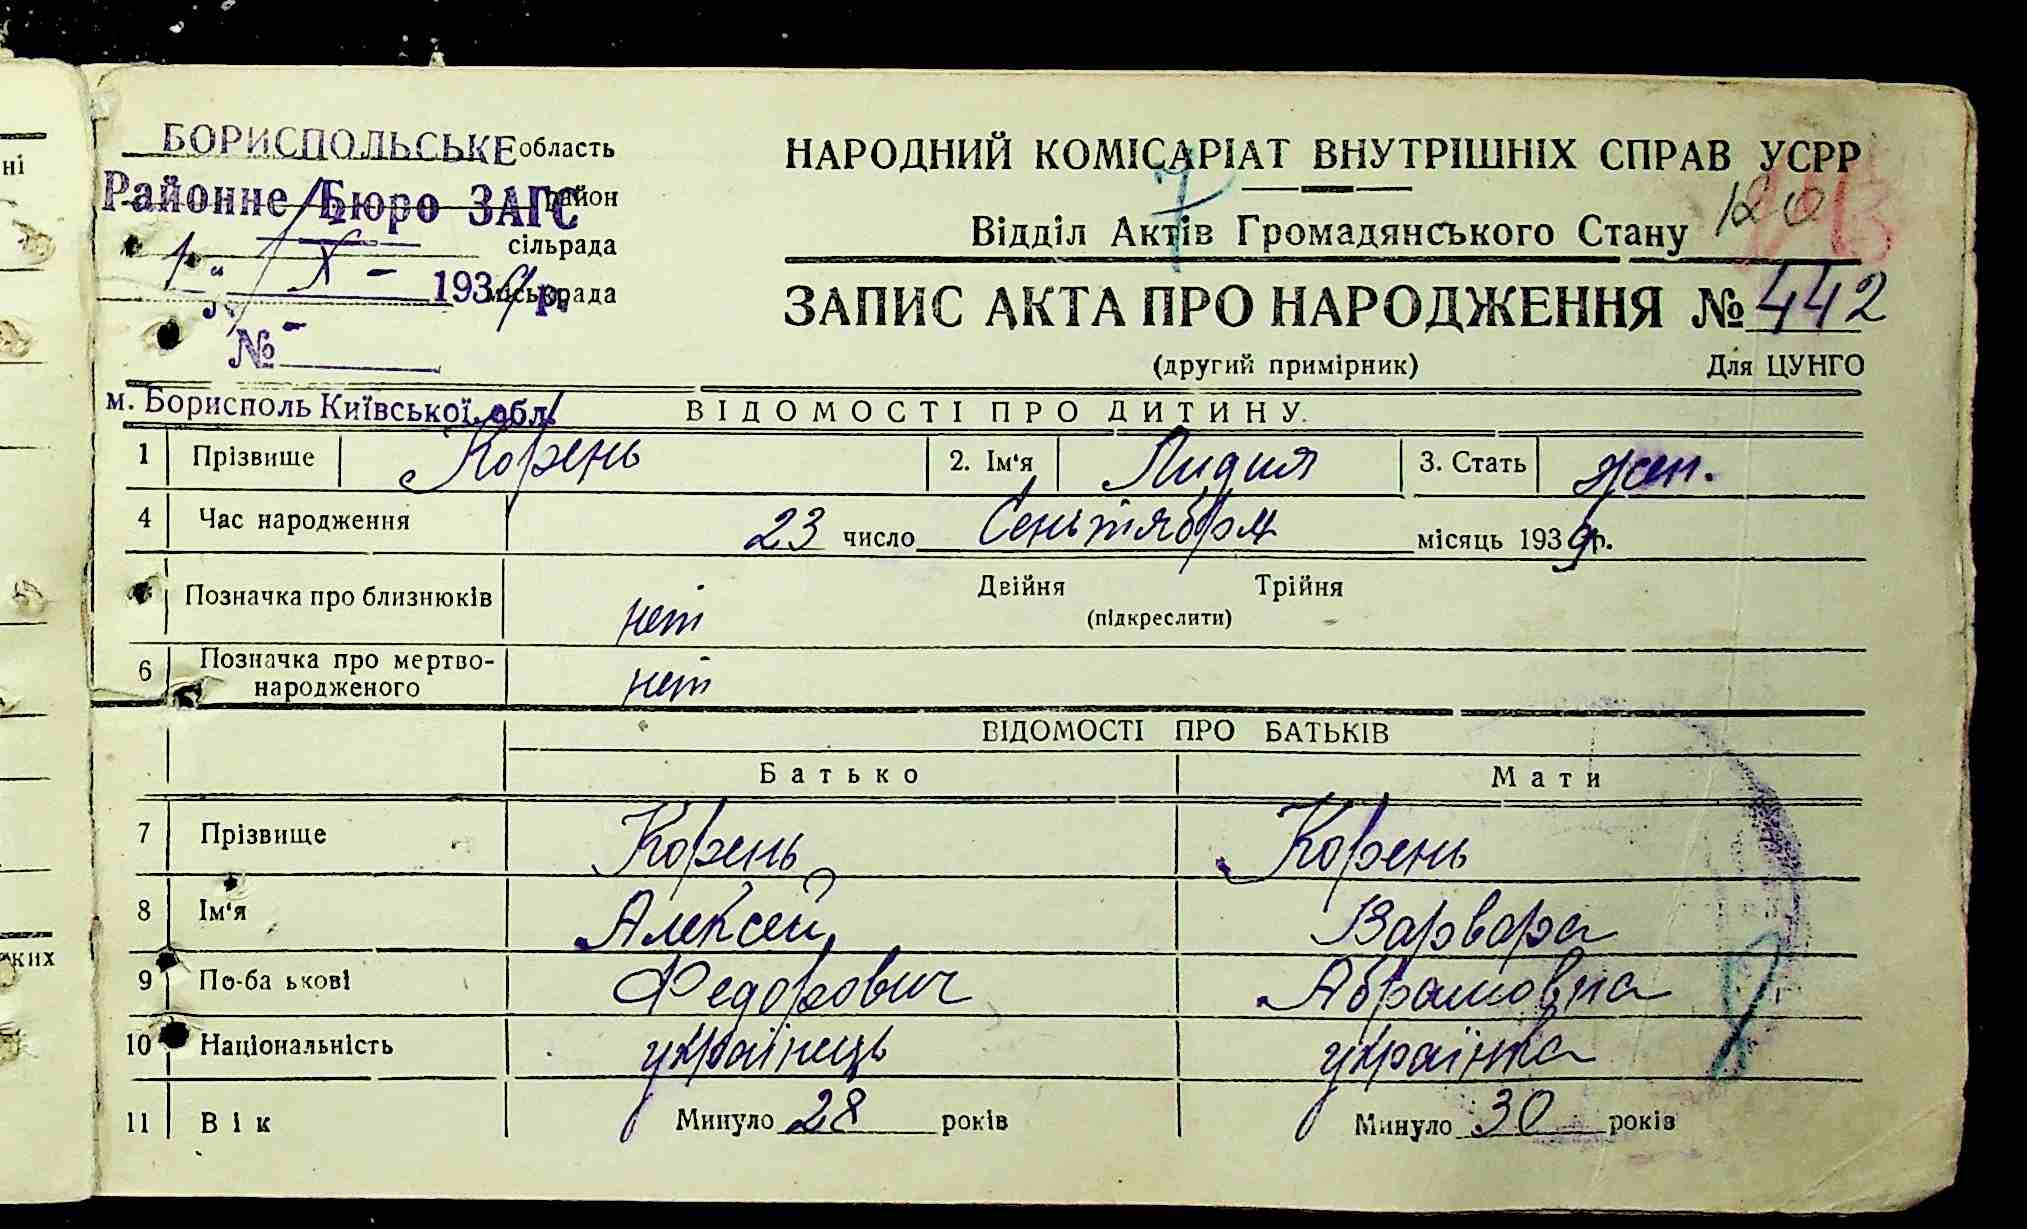 БОРИСПОЛЬСЬКЕ область
Районне Бюро ЗАГС район
сільрада
1 " X - 1939 р. міськрада
№ -
м. Борисполь Київської обл.
НАРОДНИЙ КОМІСАРІАТ ВНУТРІШНІХ СПРАВ УСРР
7
120
Відділ Актів Громадянського Стану
ЗАПИС АКТА ПРО НАРОДЖЕННЯ № 442
(другий примірник) Для ЦУНГО
ВІДОМОСТІ ПРО ДИТИНУ.
1 Прізвище Корень 2. Ім'я Лидия 3. Стать жен.
4 Час народження 23 число Сеньтября місяць 1939 р.
Позначка про близнюків нет Двійня Трійня
(підкреслити)
6 Позначка про мертво-
народженого нет
ВІДОМОСТІ ПРО БАТЬКІВ
Батько Мати
7 Прізвище Корень Корень
8 Ім'я Алексей Варвара
9 По-ба ькові Федорович Абрамовна
10 Національність українець українка
11 Вік Минуло 28 років Минуло 30 років
ні
ких